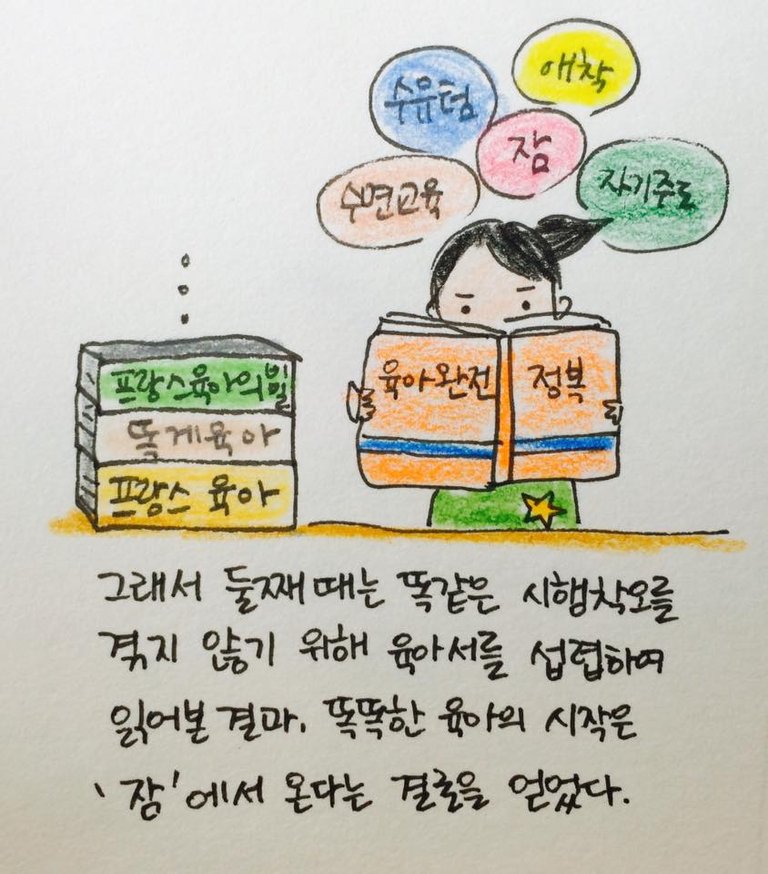 애착
수유텀
잠
자기주도
수면교육
육아완전 정복
프랑스육아의 빌
똑게육아
프랑스 육아
그래서 둘째 때는 똑같은 시행착오를
겪지 않기 위해 육아서를 섭렵하여
읽어본 결과, 똑똑한 육아의 시작은
'잠'에서 온다는 결론을 얻었다.